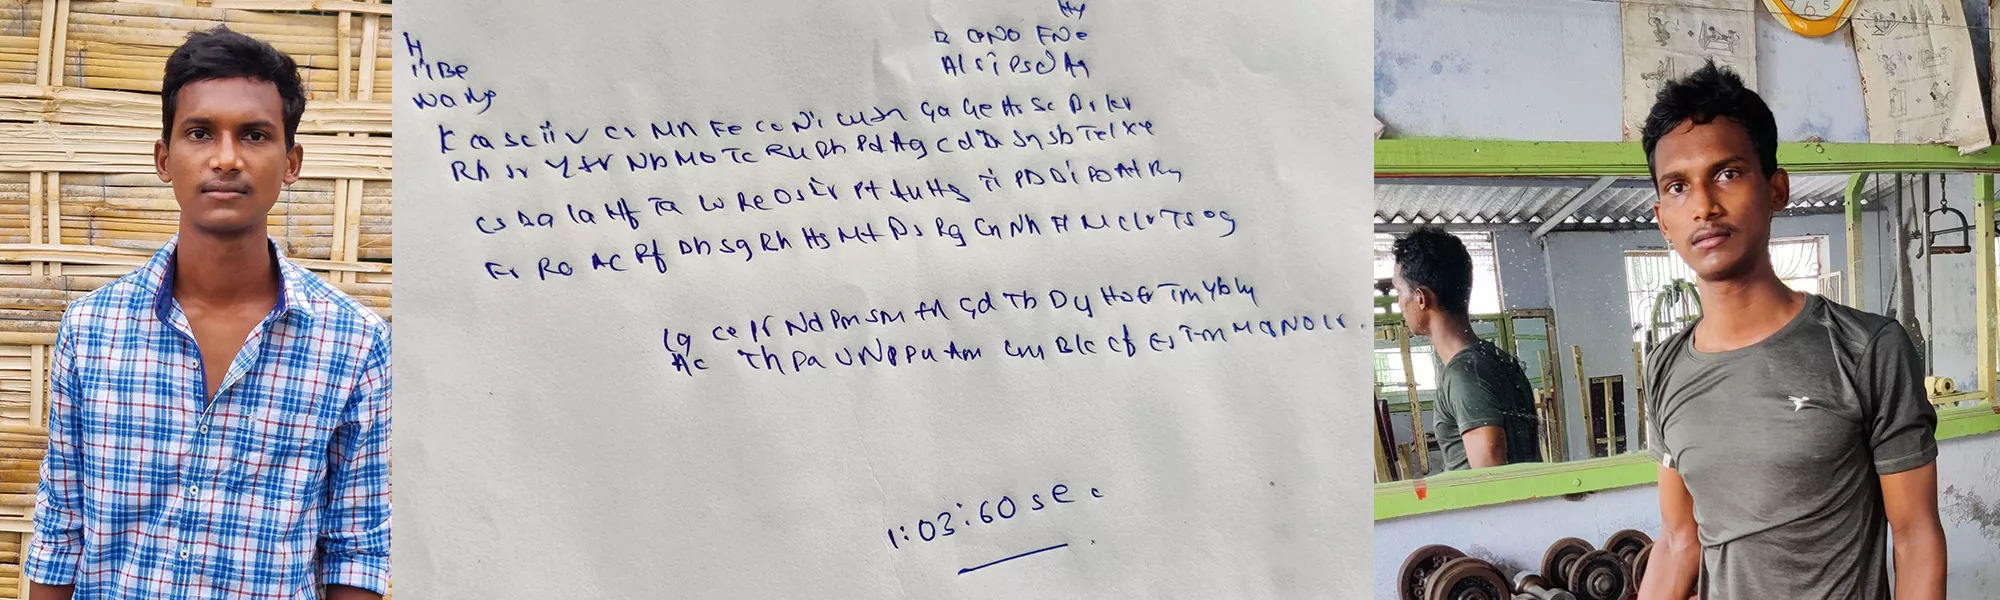 Hy
H
B CNO FNe
iiBe
AlSiPSclAg
NaMg
K CaScTiV Cr Mn Fe Co Ni CuZn Ga Ge As Se Br Kr
Rb Sr Y Zr Nb Mo Tc Ru Rh Pd Ag Cd In Sn Sb Te I Xe
Cs Ba La Hf Ta W Re Os Ir Pt Au Hg Ti Pb Bi Po At Rn
Fr Ra Ac Rf Db Sg Bh Hs Mt Ds Rg Cn Nh Fl Mc Lv Ts Og
Ce Pr Nd Pm Sm Eu Gd Tb Dy Ho Er Tm Yb Lu
Ac Th Pa U Np Pu Am Cm Bk Cf Es Fm Md No Lr.
1:03:60 sec
7 6 5